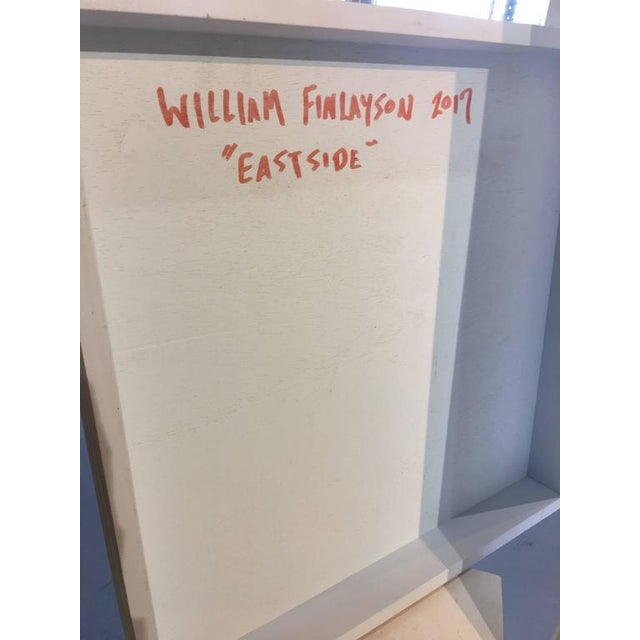 WILLIAM FINLAYSON 2017
"EASTSIDE"